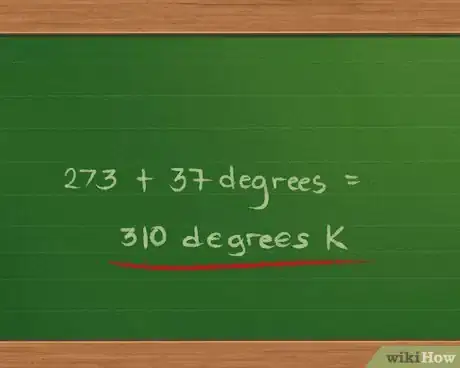 273 + 37 degrees =
310 degrees K
wikiHow